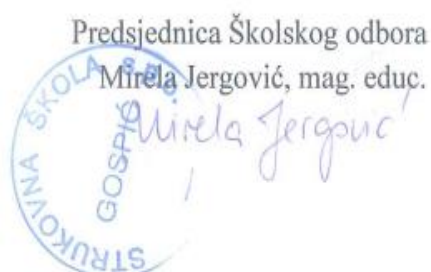 Predsjednica Školskog odbora
Mirela Jergović, mag. educ.
Mirela Jergović
STRUKOVNA ŠKOLA
GOSPIĆ